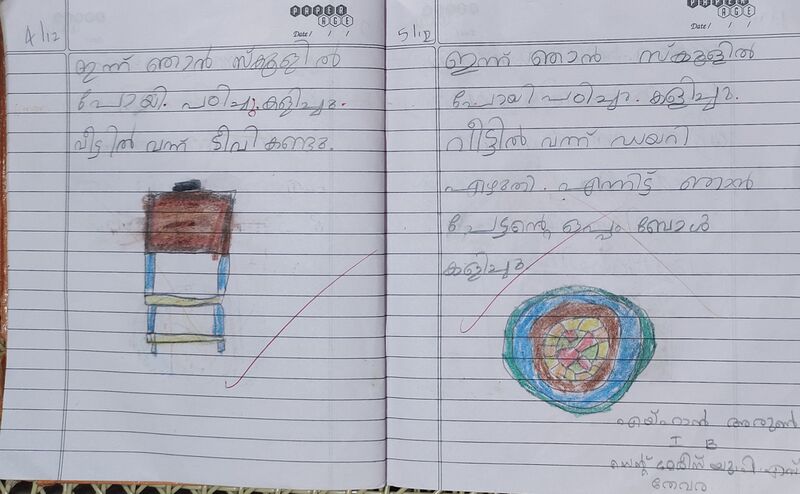 PAPER
AGE
Date / / /
4/12
ഇന്ന് ഞാൻ സ്കൂളിൽ
പോയി. പഠിച്ചു. കളിച്ചു.
വീട്ടിൽ വന്ന് ടീവി കണ്ടു.
PAPER
AGE
Date / / /
5/12
ഇന്ന് ഞാൻ സ്കൂളിൽ
പോയി പഠിച്ചു. കളിച്ചു.
വീട്ടിൽ വന്ന് ഡയറി
എഴുതി. എന്നിട്ട് ഞാൻ
ചേട്ടന്റെ ഒപ്പം ബോൾ
കളിച്ചു
അരുൺ
I B
സെന്റ് മേരീസ് യു പി എസ്
തേവര